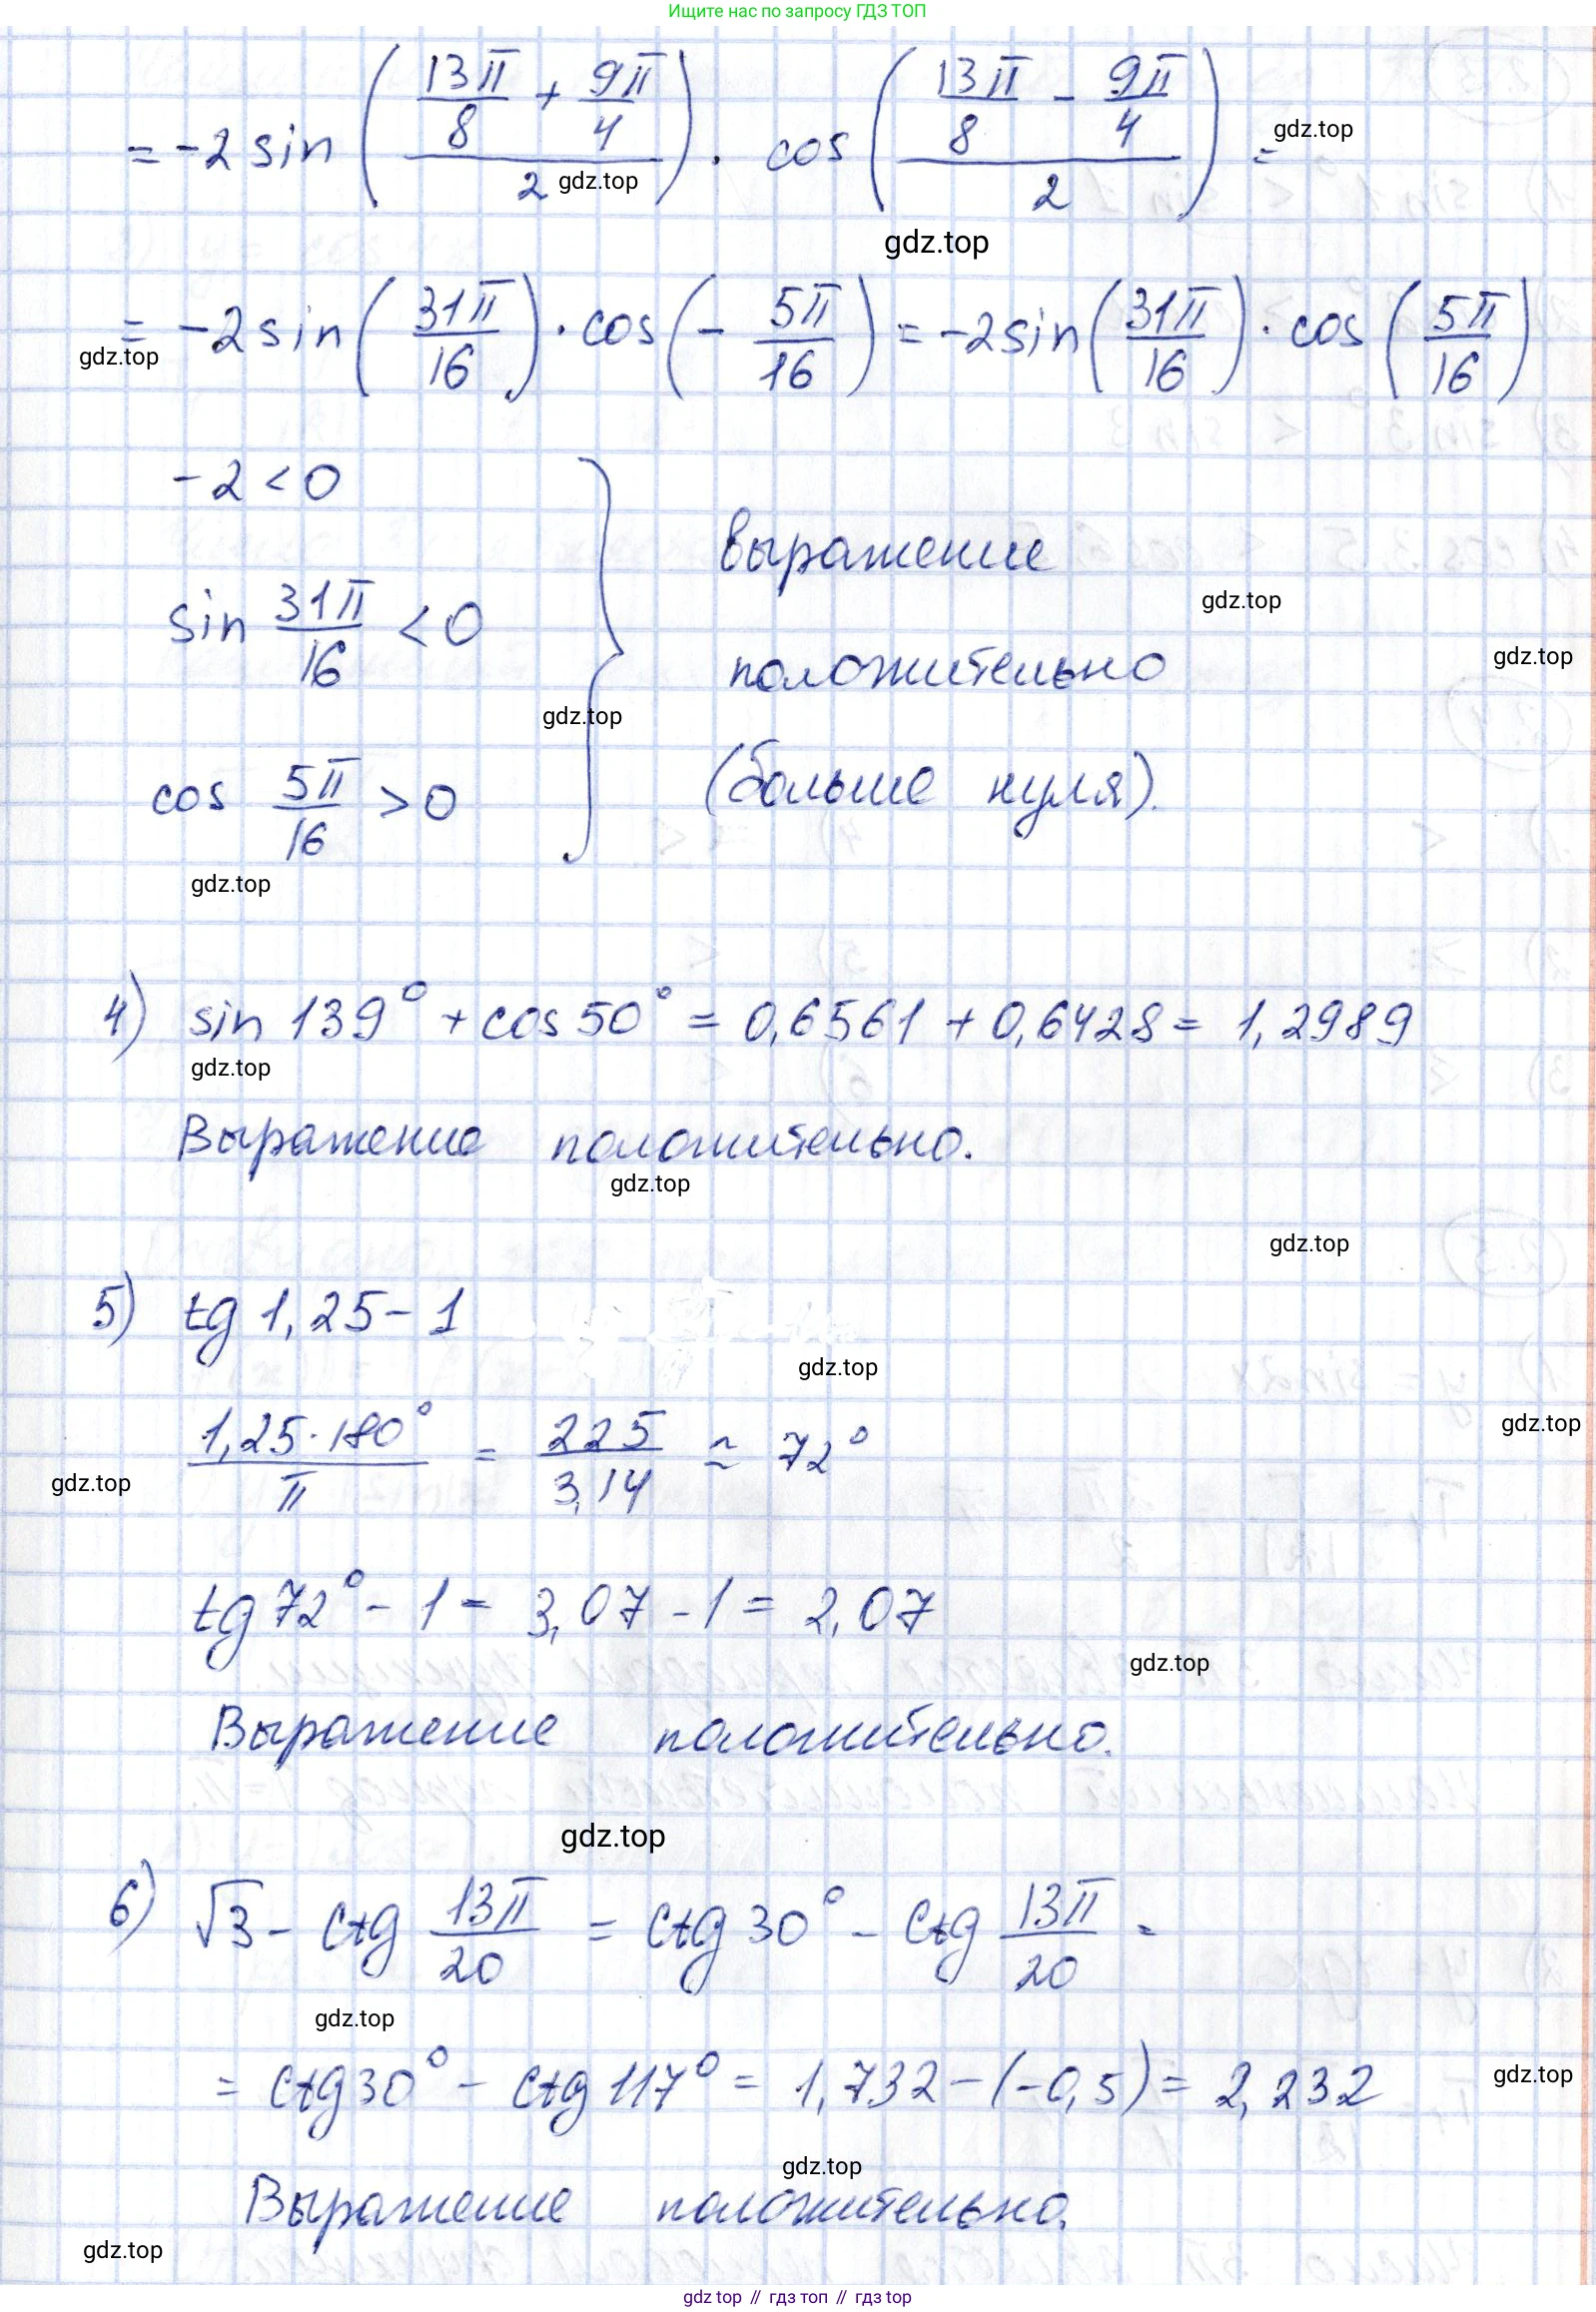 Ищите нас по запросу ГДЗ ТОП
= -2 sin ((13π/8 + 9π/4)/2) · cos ((13π/8 - 9π/4)/2) =
gdz.top
gdz.top
gdz.top
= -2 sin (31π/16) · cos (- 5π/16) = -2 sin (31π/16) · cos (5π/16)
gdz.top
-2 < 0
выражение
gdz.top
sin 31π/16 < 0
положительно
gdz.top
gdz.top
cos 5π/16 > 0
(больше нуля).
gdz.top
4) sin 139° + cos 50° = 0,6561 + 0,6428 = 1,2989
gdz.top
Выражение положительно.
gdz.top
gdz.top
5) tg 1,25 - 1
gdz.top
1,25 · 180°/π = 225/3,14 ≈ 72°
gdz.top
gdz.top
tg 72° - 1 = 3,07 - 1 = 2,07
gdz.top
Выражение положительно.
gdz.top
6) √3 - ctg 13π/20 = ctg 30° - ctg 13π/20 =
gdz.top
= ctg 30° - ctg 117° = 1,732 - (-0,5) = 2,232
gdz.top
gdz.top
Выражение положительно.
gdz.top
gdz top // гдз топ // гдз.top